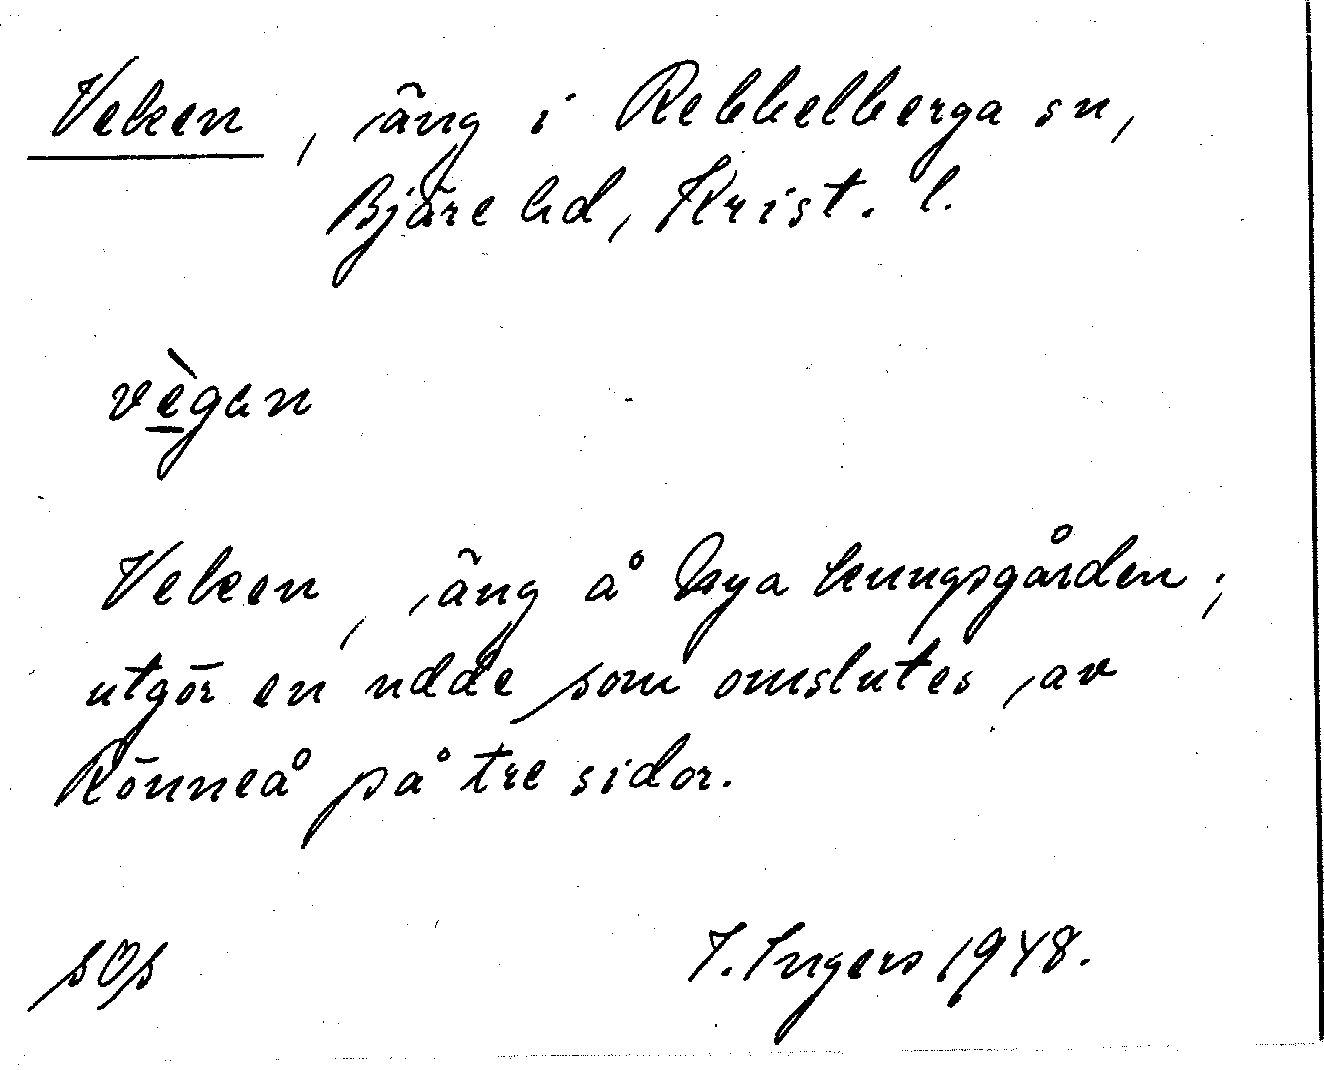 Veken, äng i Rebbelberga sn,
Bjäre hd, Krist. l.
vègan
Veken, äng å Nya kungsgården;
utgör en udde som omslutes av
Rönneå på tre sidor.
sOs
I. Ingers 1948.